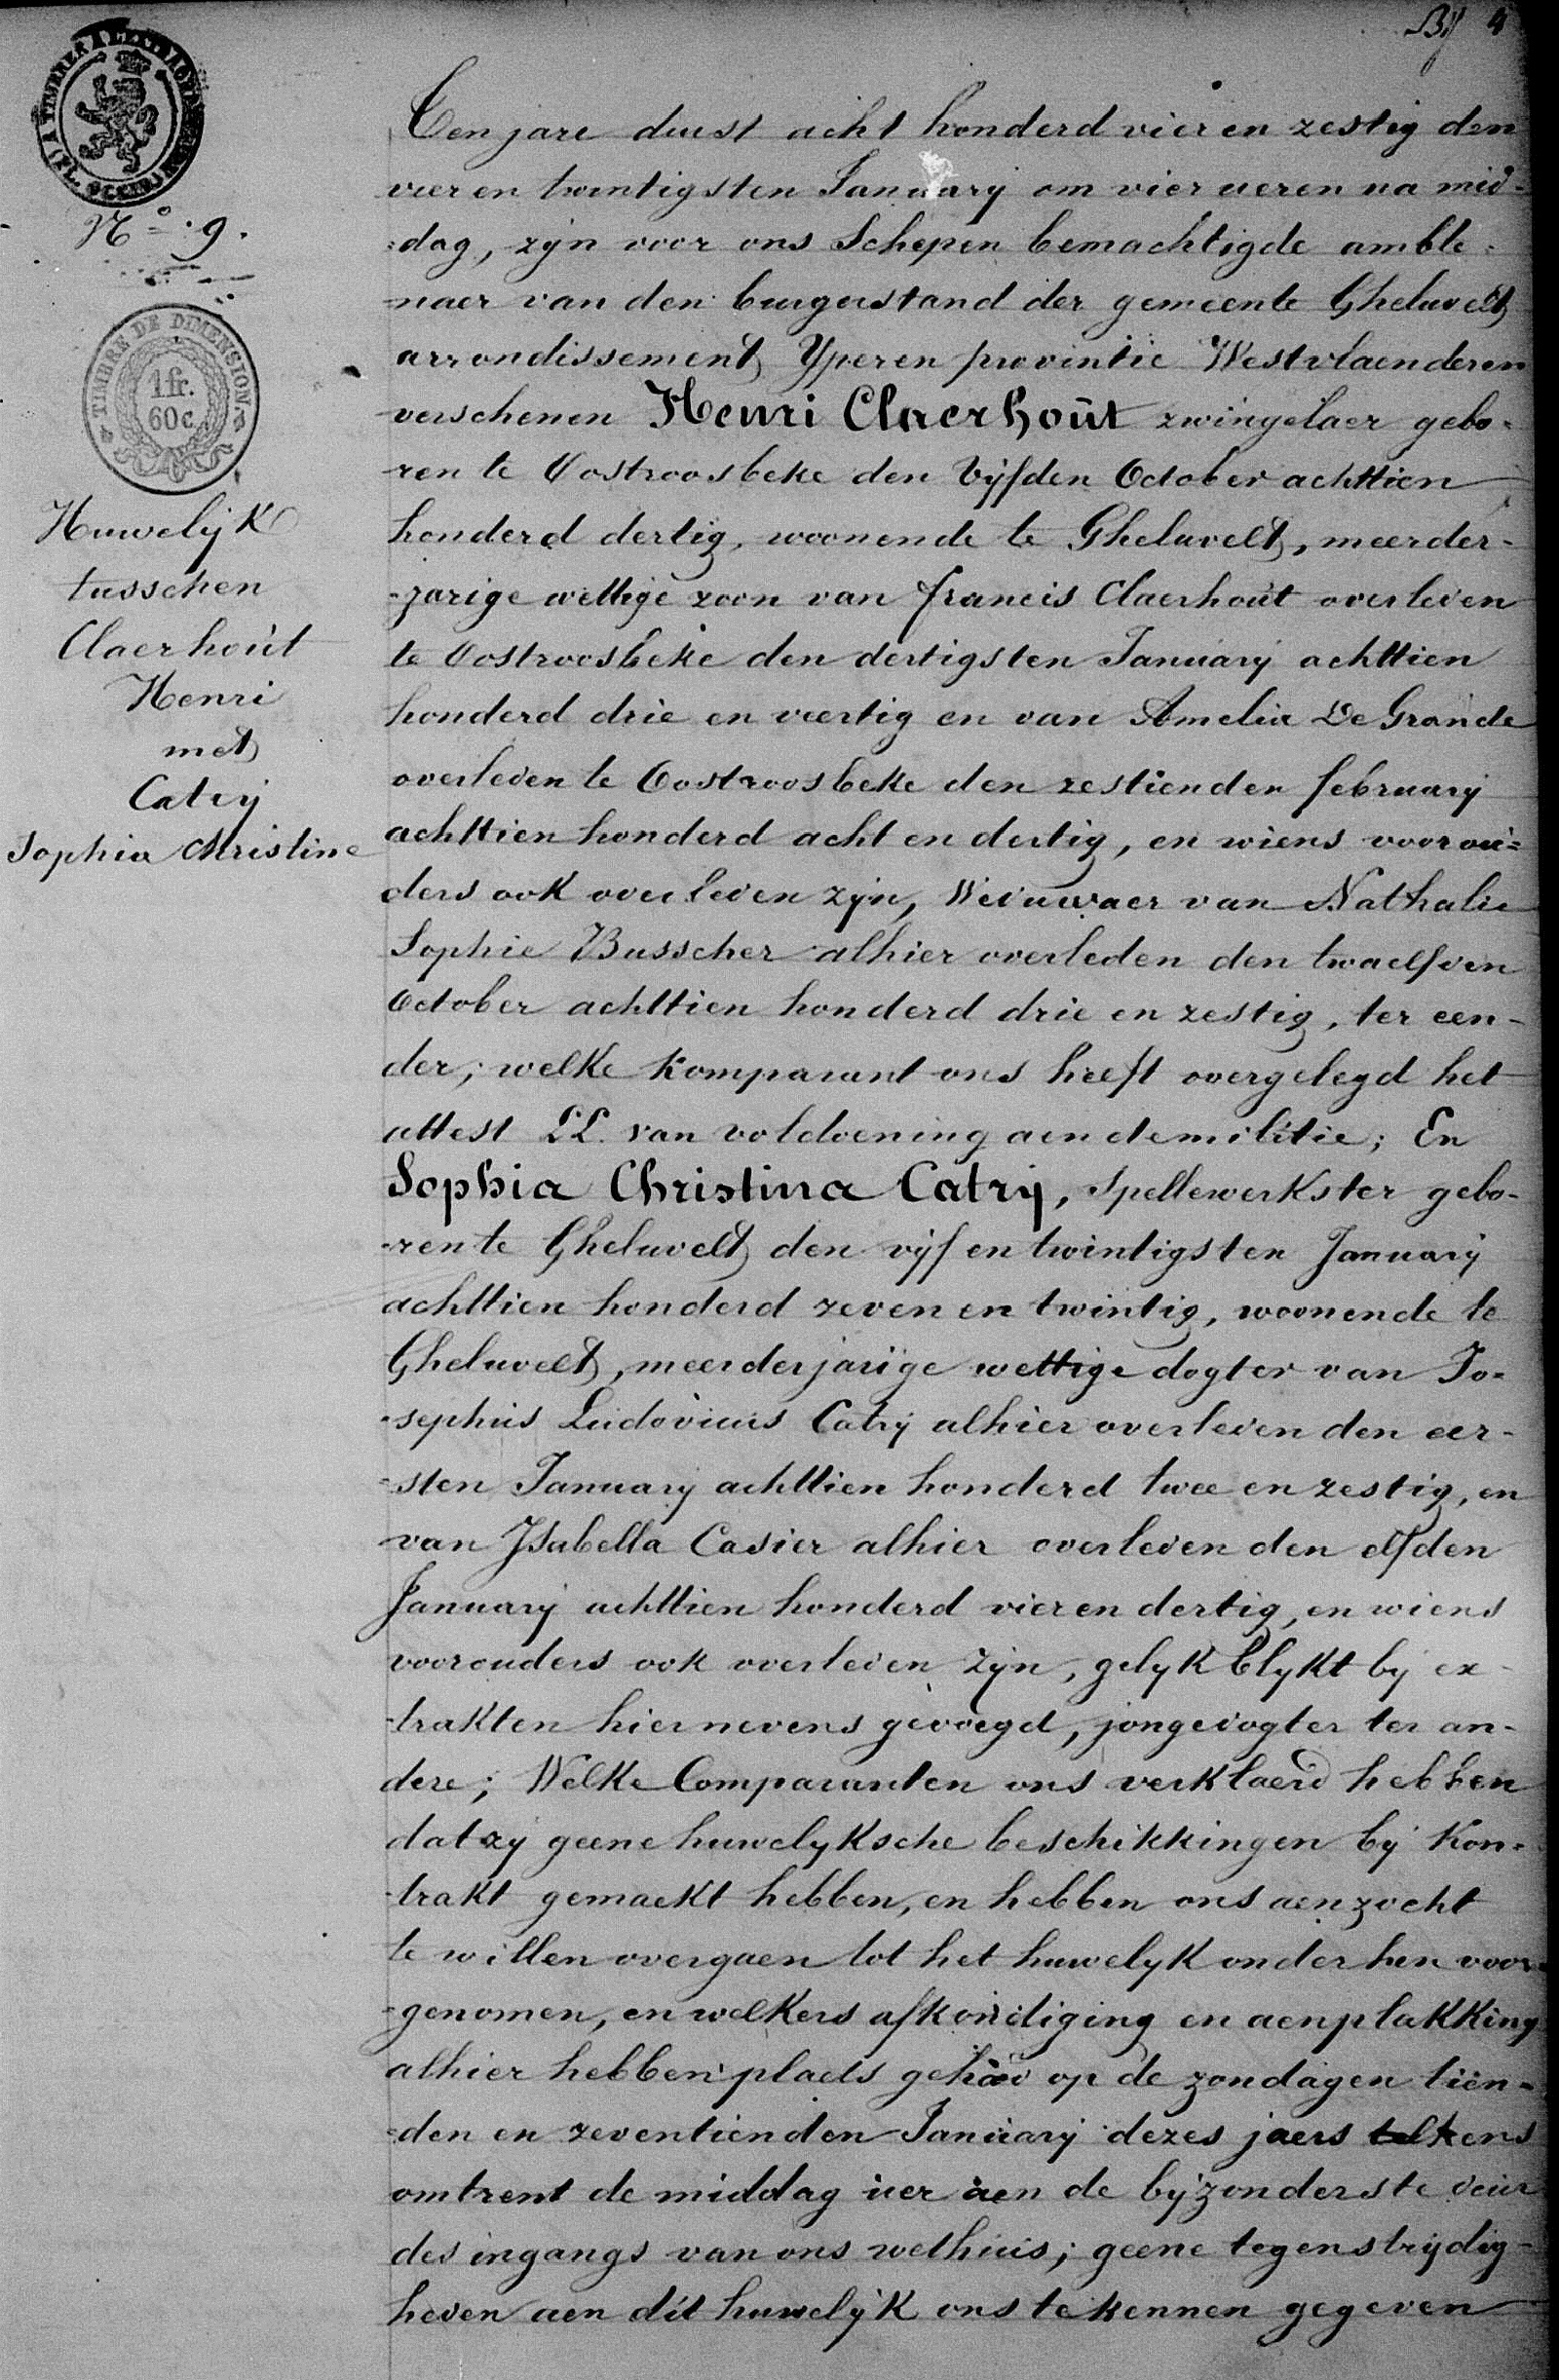 Bij 4
A TIMBRER A L'EXTRAORD
(FL. OCCID.)
N.º 9.
TIMBRE DE DIMENSION
1 fr.
60 c.
Huwelijk
tusschen
Claerhout
Henri
met
Catrij
Sophia Christine
Ten jare duust acht honderd vier en zestig den
vier en twintigsten January om vier ueren na mid-
-dag, zijn voor ons Schepen bemachtigde ambte-
-naer van den burgerstand der gemeente Gheluvelt
arrondissement Yperen provintie Westvlaenderen
verschenen Henri Claerhout zwingelaer gebo-
-ren te Oostroosbeke den Vijfden October achttien
honderd dertig, woonende te Gheluvelt, meerder-
-jarige wettige zoon van francis Claerhout overleden
te Oostroosbeke den dertigsten January achttien
honderd drie en veertig en van Amelia De Grande
overleden te Oostroosbeke den zestienden february
achttien honderd acht en dertig, en wiens voorou-
ders ook overleden zijn, Weduwaer van Nathalie
Sophie Busscher alhier overleden den twaelfden
October achttien honderd drie en zestig, ter een-
der; welke komparant ons heeft overgelegd het
attest LL. van voldoening aen de militie; En
Sophia Christina Catrij, Spellewerkster gebo-
-ren te Gheluvelt den vijf en twintigsten January
achttien honderd zeven en twintig, woonende te
Gheluvelt, meerderjarige wettige dogter van Jo-
-sephus Ludovicus Catrij alhier overleden den eer-
-sten January achttien honderd twee en zestig, en
van Isabella Casier alhier overleden den elfden
January achttien honderd vier en dertig, en wiens
voorouders ook overleden zijn, gelyk blykt bij ex-
-trakten hiernevens gevoegd, jongedogter ter an-
dere; Welke Comparanten ons verklaerd hebben
dat zy geene huwelyksche beschikkingen bij kon-
-trakt gemaekt hebben, en hebben ons aenzocht
te willen overgaen tot het huwelyk onder hen voor-
-genomen, en welkers afkondiging en aenplakking
alhier hebben plaets gehad op de zondagen tien-
-den en zeventienden January dezes jaers telkens
omtrent de middag uer aen de bijzonderste deur
des ingangs van ons wethuis; geene tegenstrydig-
heden aen dit huwelijk ons te kennen gegeven